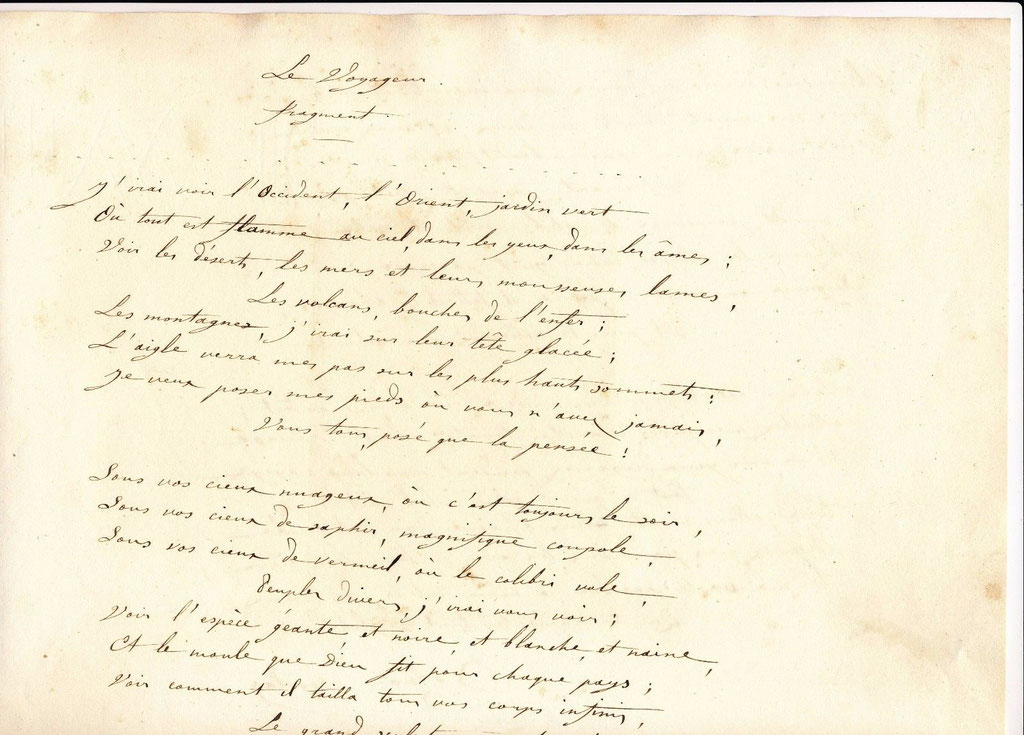 Le Voyageur.
fragment.
. . . . . . . . . . . . . . . . . . .
J'irai voir l'Occident, l'Orient, jardin vert
Où tout est flamme au ciel, dans les yeux, dans les âmes ;
Voir les déserts, les mers et leurs mousseuses lames,
Les volcans, bouches de l'enfer ;
Les montagnes, j'irai sur leur tête glacée ;
L'aigle verra mes pas sur les plus hauts sommets :
Je veux poser mes pieds où vous n'avez jamais,
Vous tous, posé que la pensée !
Sous vos cieux nuageux, où c'est toujours le soir,
Sous vos cieux de saphir, magnifique coupole,
Sous vos cieux de vermeil, où le colibri vole,
Peuples divers, j'irai vous voir ;
Voir l'espèce géante, et noire, et blanche, et naine,
Et le moule que Dieu fit pour chaque pays ;
Voir comment il tailla tous vos corps infinis,
Le grand